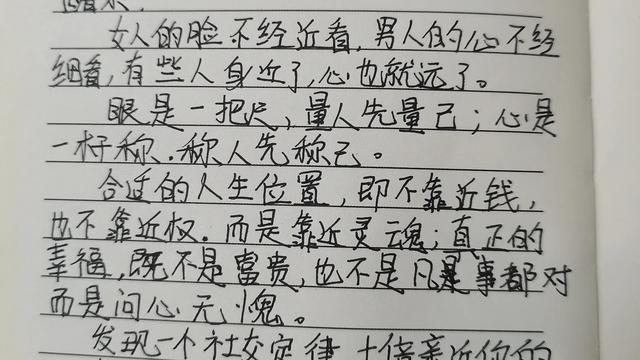 女人的脸不经近看,男人的心不经
细看,有些人身近了,心也就远了。
眼是一把尺,量人先量己;心是
一杆称.称人先称己。
合适的人生位置,即不靠近钱,
也不靠近权.而是靠近灵魂;真正的
幸福,既不是富贵,也不是凡是事都对
而是问心无愧。
发现一个社交定律